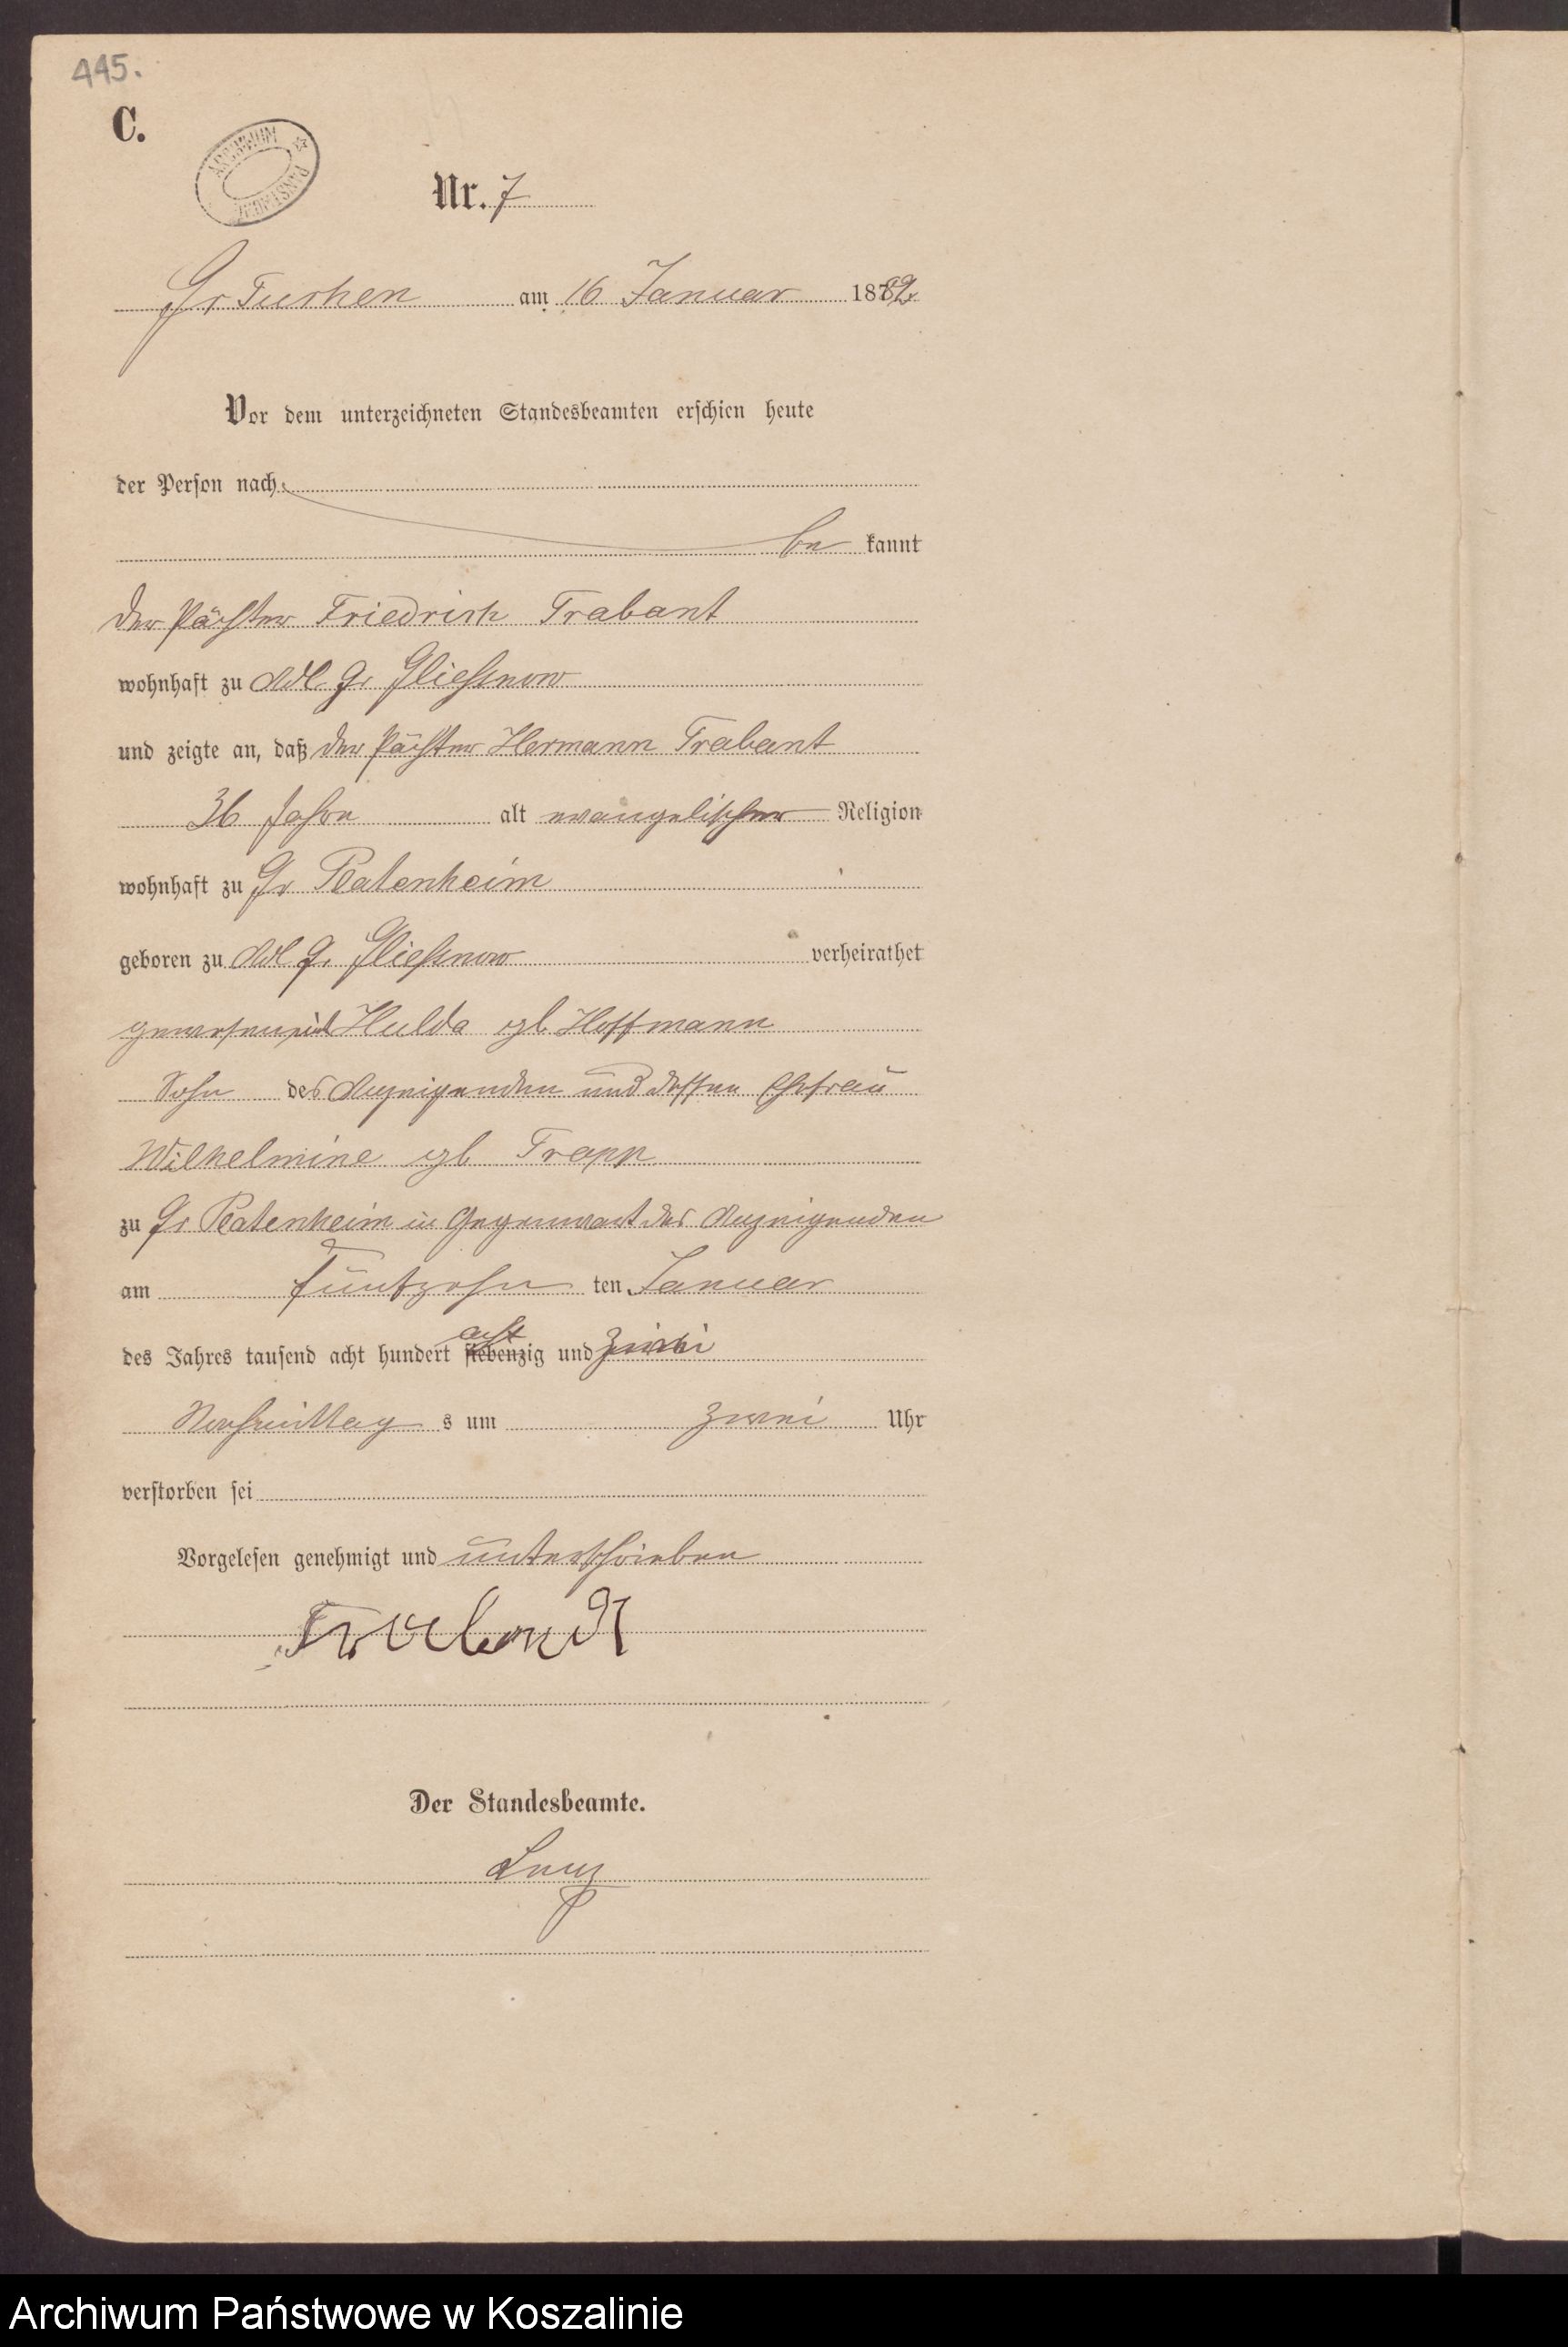 445.
C.
ARCHIWUM PAŃSTWOWE
Nr. 7
Gr Tuchen am 16 Januar 1882.
Vor dem unterzeichneten Standesbeamten erschien heute
der Person nach
be kannt
der Pächter Friedrich Trabant
wohnhaft zu Adl. Gr. Gliessnow
und zeigte an, daß der Pächter Hermann Trabant
36 Jahre alt evangelischer Religion
wohnhaft zu Gr Platenheim
geboren zu Adl Gr. Gliessnow verheirathet
gewesen mit Hulda geb. Hoffmann
Sohn des Anzeigenden und dessen Ehefrau
Wilhelmine geb Trapp
zu Gr Platenheim in Gegenwart des Anzeigenden
am fünfzehn ten Januar
des Jahres tausend acht hundert siebenzig acht und zwei
Nachmittag s um zwei Uhr
verstorben sei
Vorgelesen genehmigt und unterschrieben
Der Standesbeamte.
Archiwum Państwowe w Koszalinie